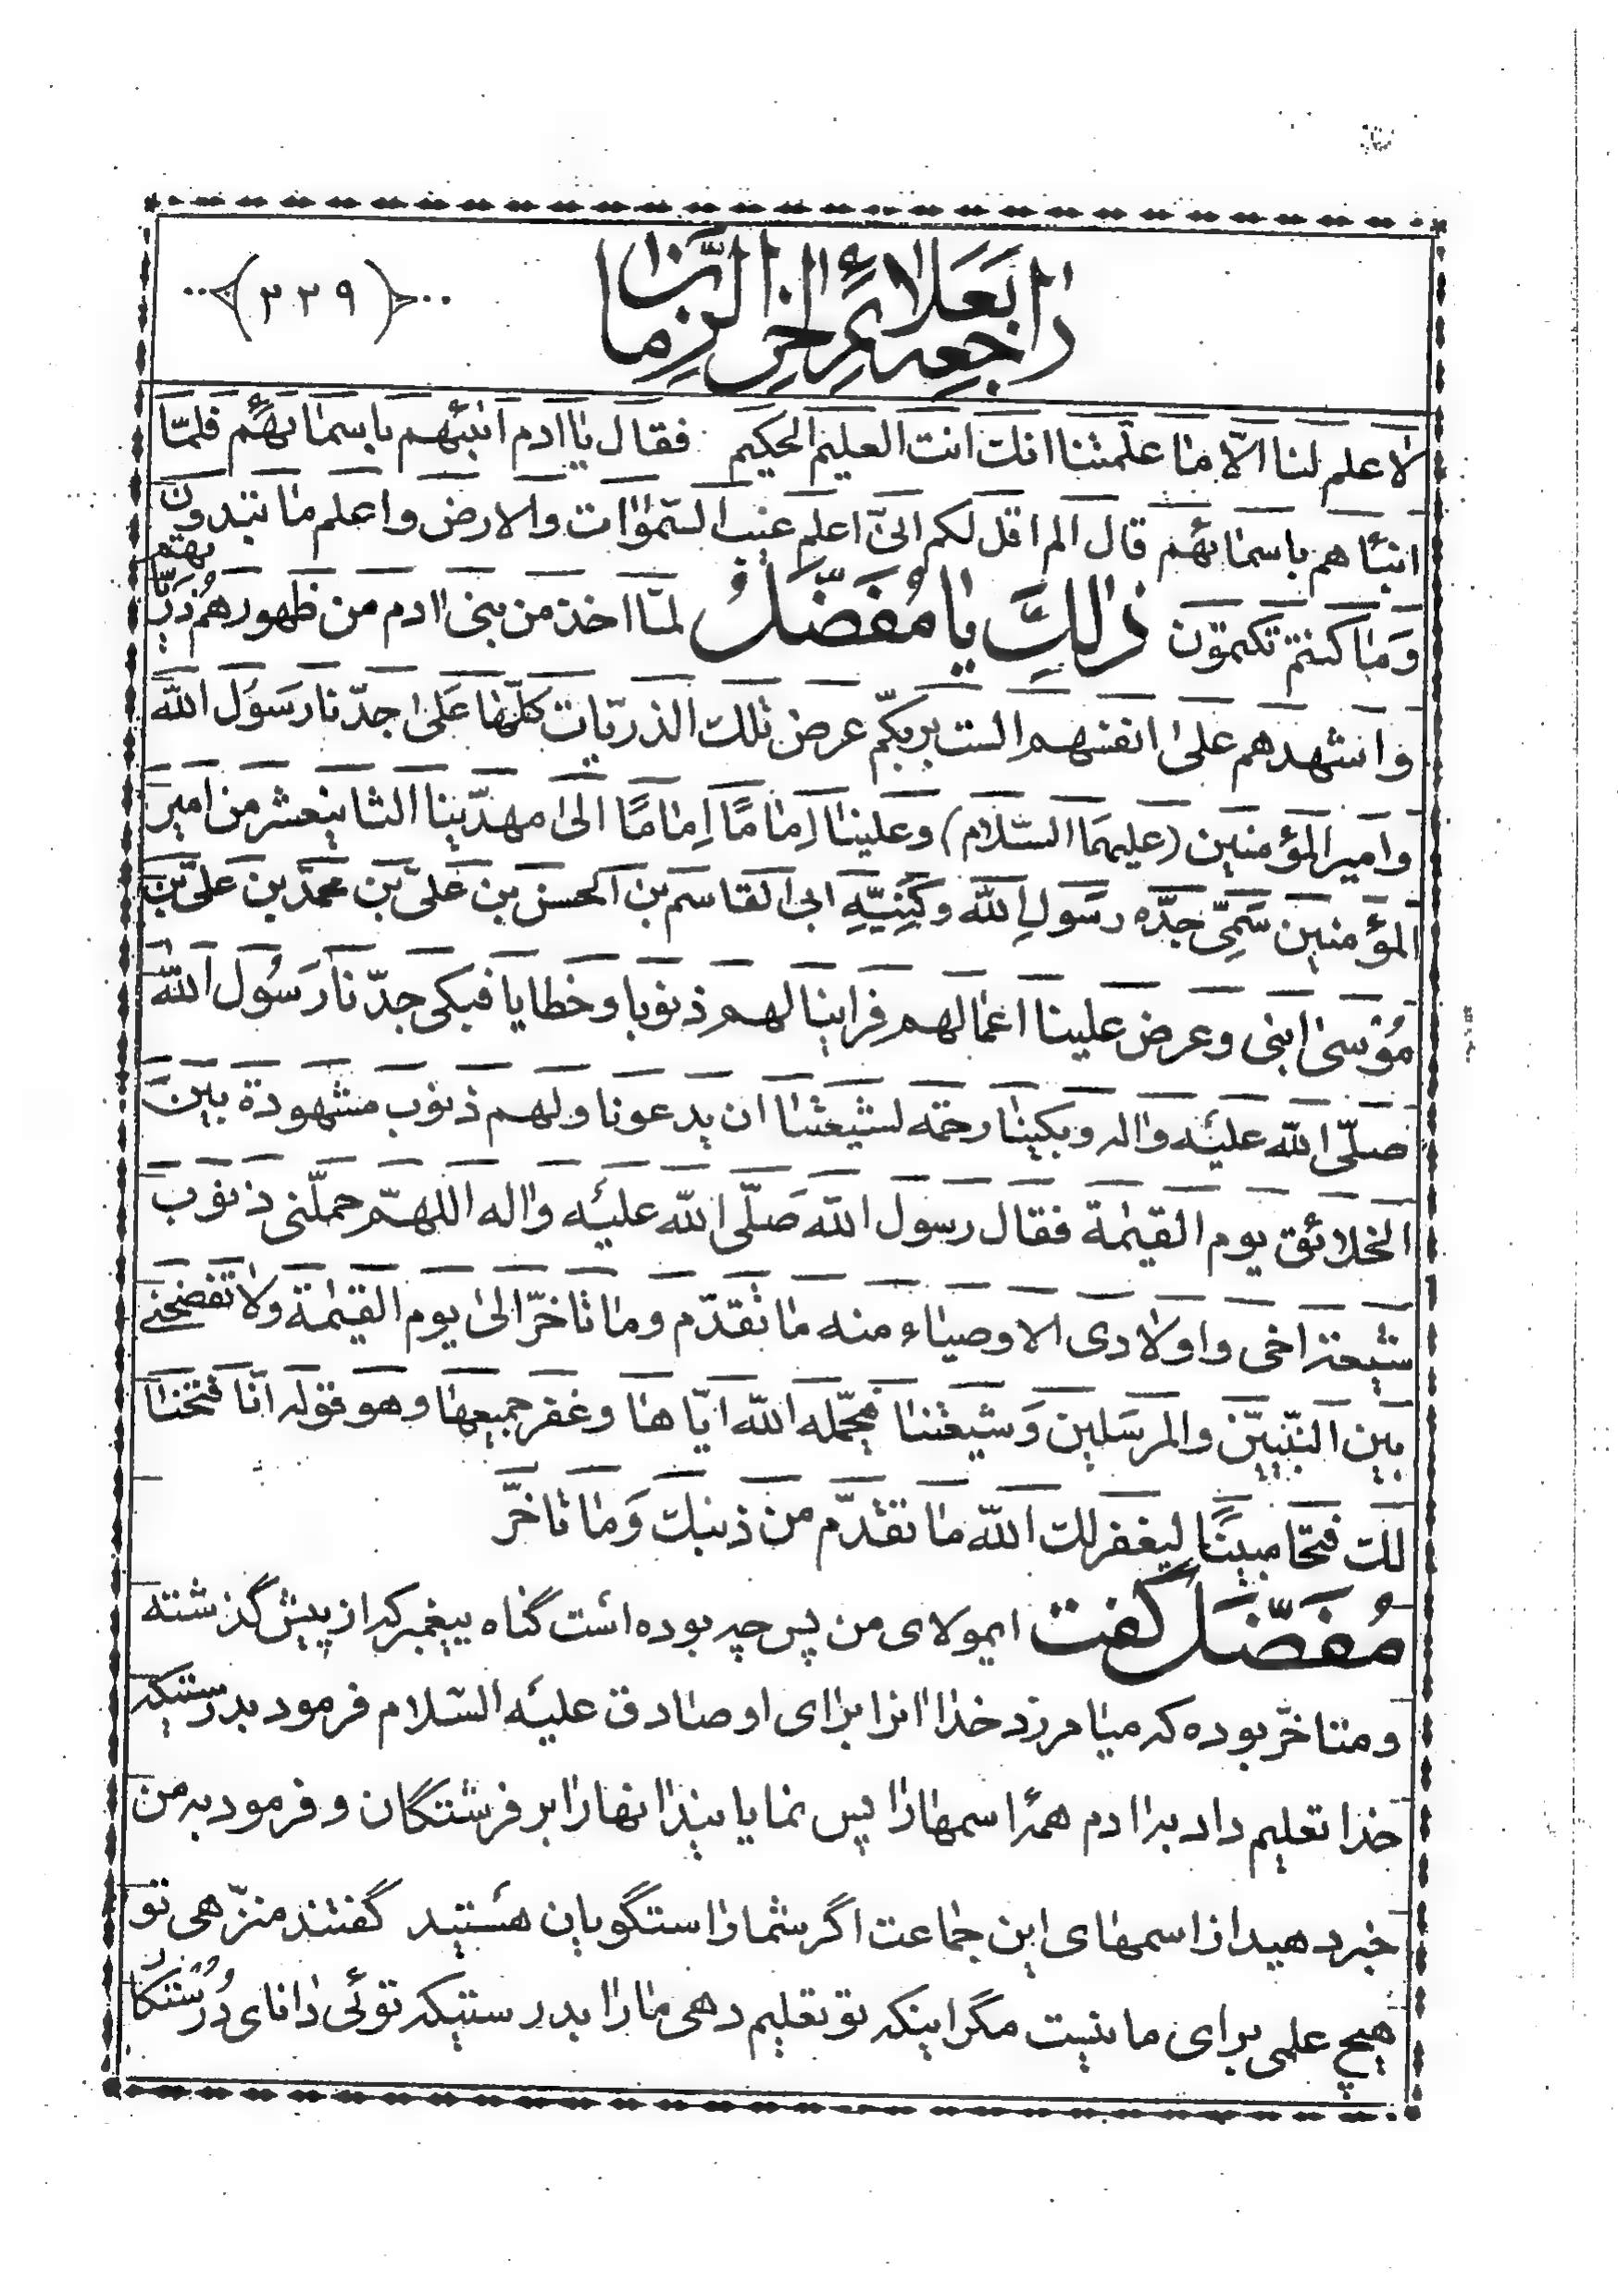 راجعه بعلائم اخر الزمان
(۳۲۹)
لا علم لنا الّا ما علّمتنا انك انت العليم الحكيم فقال يا ادم انبئهم باسمائهم فلمّا
انبئاهم باسمائهم قال الم اقل لكم انى اعلم غيب السّموات والارض واعلم ما تبدون
وَما كنتم تكتمون ذٰلِكَ يا مُفَضَّلُ لمّا اخذ من بنى ادم من ظهورهم ذُرّيّاتهم
واشهدهم على انفسهم الست بربكّم عرض تلك الذريات كلّها على جدّنا رسَوُل اللّه
وامير المؤمنين (عليهما السّلام) وعلينا اِمامًا اِمامًا الى مهديّنا الثانيعشر من امير
المؤمنين سَمِىّ جدّه رسَول اللّه وكَنِيّهِ ابى القاسم بن الحسن بن علىّ بن محمّد بن علىّ بن
مُوسى ابنى وعرض علينا اعمالهم فراينا لهم ذنوبا وخطايا فبكى جدّنا رسَوُل اللّه
صلّى اللّه عليه واله وبكينا رحمة لشيعتنا ان يدعونا ولهم ذنوب مشهودة بين
الخلائق يوم القيمة فقال رسول اللّه صَلّى اللّه عليه واله اللهمّ حملّنى ذنوب
شيعة اخى واولادى الاوصياء منه ما تقدّم وما تاخرّ الى يوم القيمة ولا تفضحنى
بين النّبيّين والمرسَلين وَشيعتنا فحمّله اللّه ايّاها وغفر جميعها وهو قوله انّا فتحنا
لك فتحا مبينًا ليغفر لك اللّه ما تقدّم من ذنبك وَما تاخّر
مُفَضّل گفت ايمولاى من پس چه بوده است گناه پيغمبر كه از پيش گذشته
و متاخّر بوده كه ميامرزد خدا انرا براى او صادق عليه السّلام فرمود بدرستيكه
خدا تعليم داد به ادم همهٔ اسمها را پس نمايانيد انها را بر فرشتگان و فرمود به من
خبر دهيد از اسمهاى اين جماعت اگر شما راستگويان هستيد گفتند منزّهى تو
هيچ علمى براى ما نيست مگر اينكه تو تعليم دهى ما را بدرستيكه توئى داناى دُرُستكار